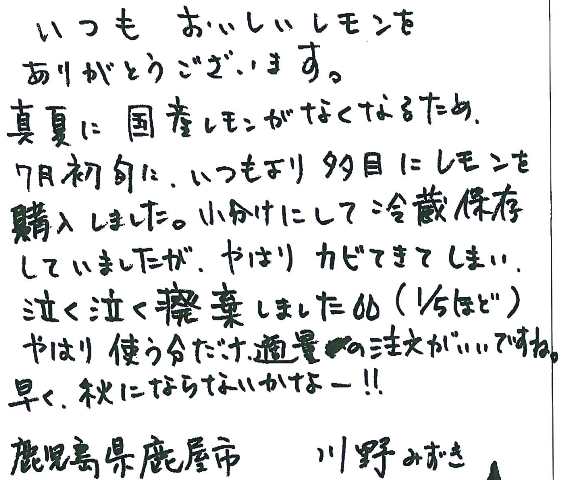 いつも おいしいレモンを
ありがとうございます。
真夏に 国産レモンがなくなるため、
7月初旬に、いつもより 多目にレモンを
購入しました。小分けにして 冷蔵保存
していましたが、やはり カビてきてしまい、
泣く泣く 廃棄しました (1/5ほど)
やはり 使う分だけ、適量の注文がいいですね。
早く、秋にならないかなー!!
鹿児島県鹿屋市 川野みずき